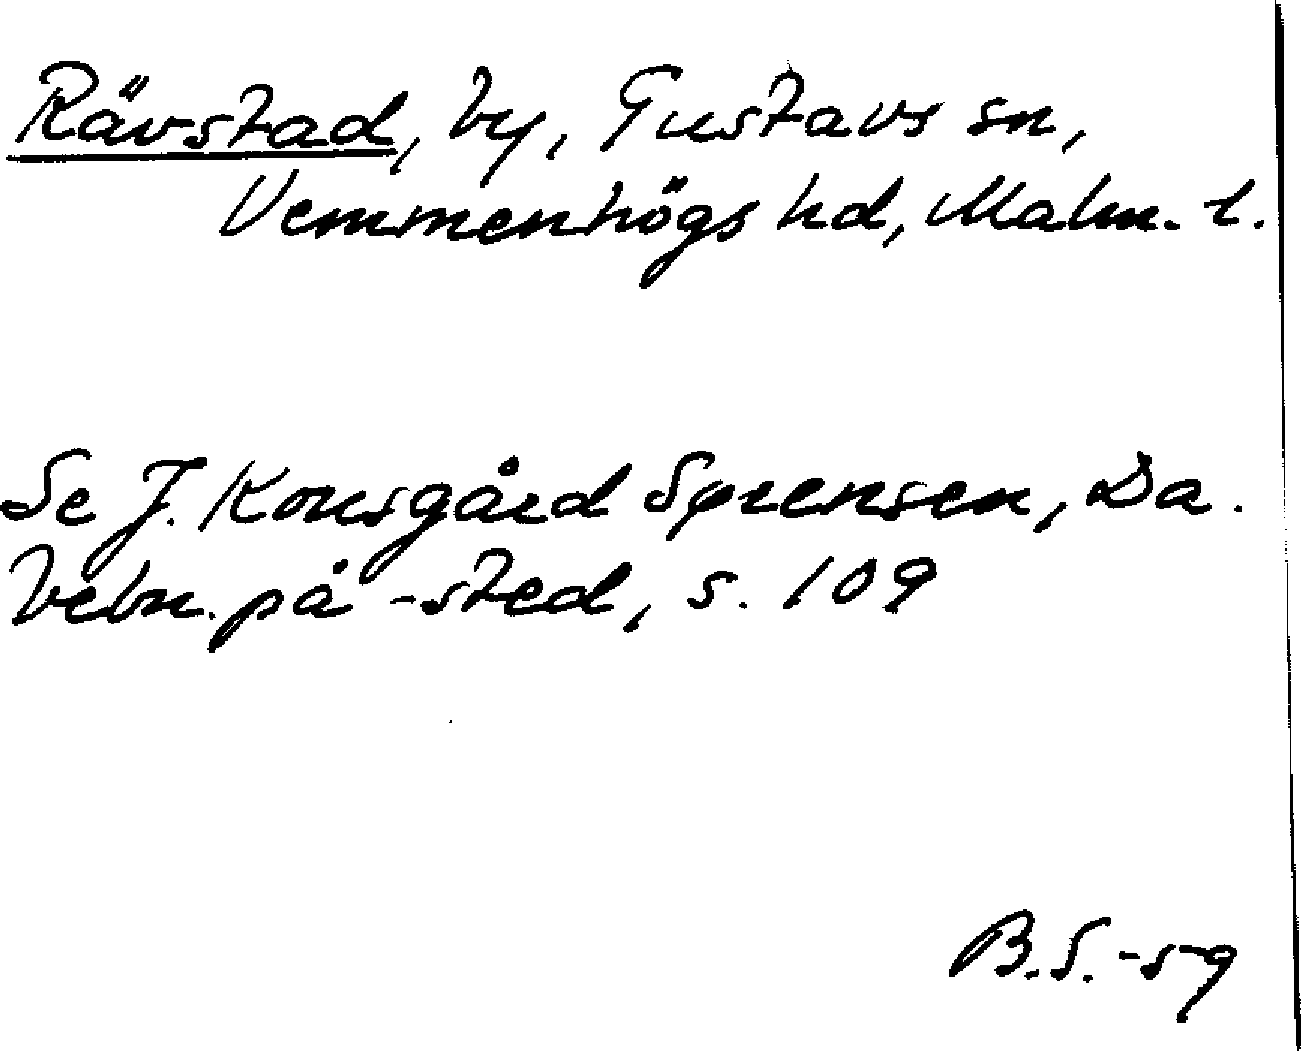 Rävstad, by, Gustavs sn,
Vemmenhögs hd, Malm. l.
Se J. Kousgård Sørensen, Da.
bebn. på -sted, s. 109
B.S.-59